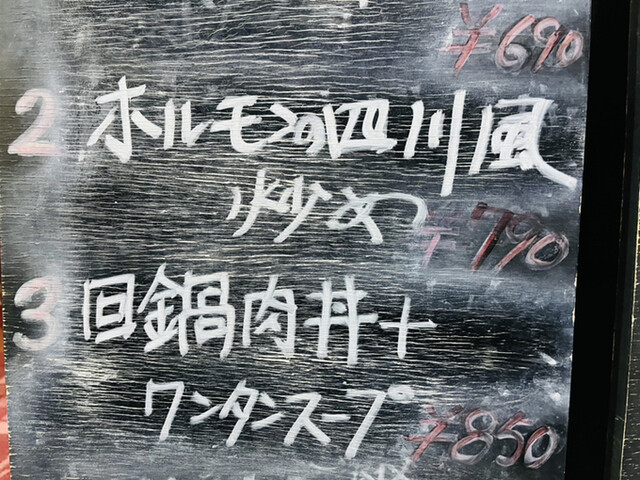 ¥690
2 ホルモンの四川風
炒め ¥790
3 回鍋肉丼+
ワンタンスープ ¥850